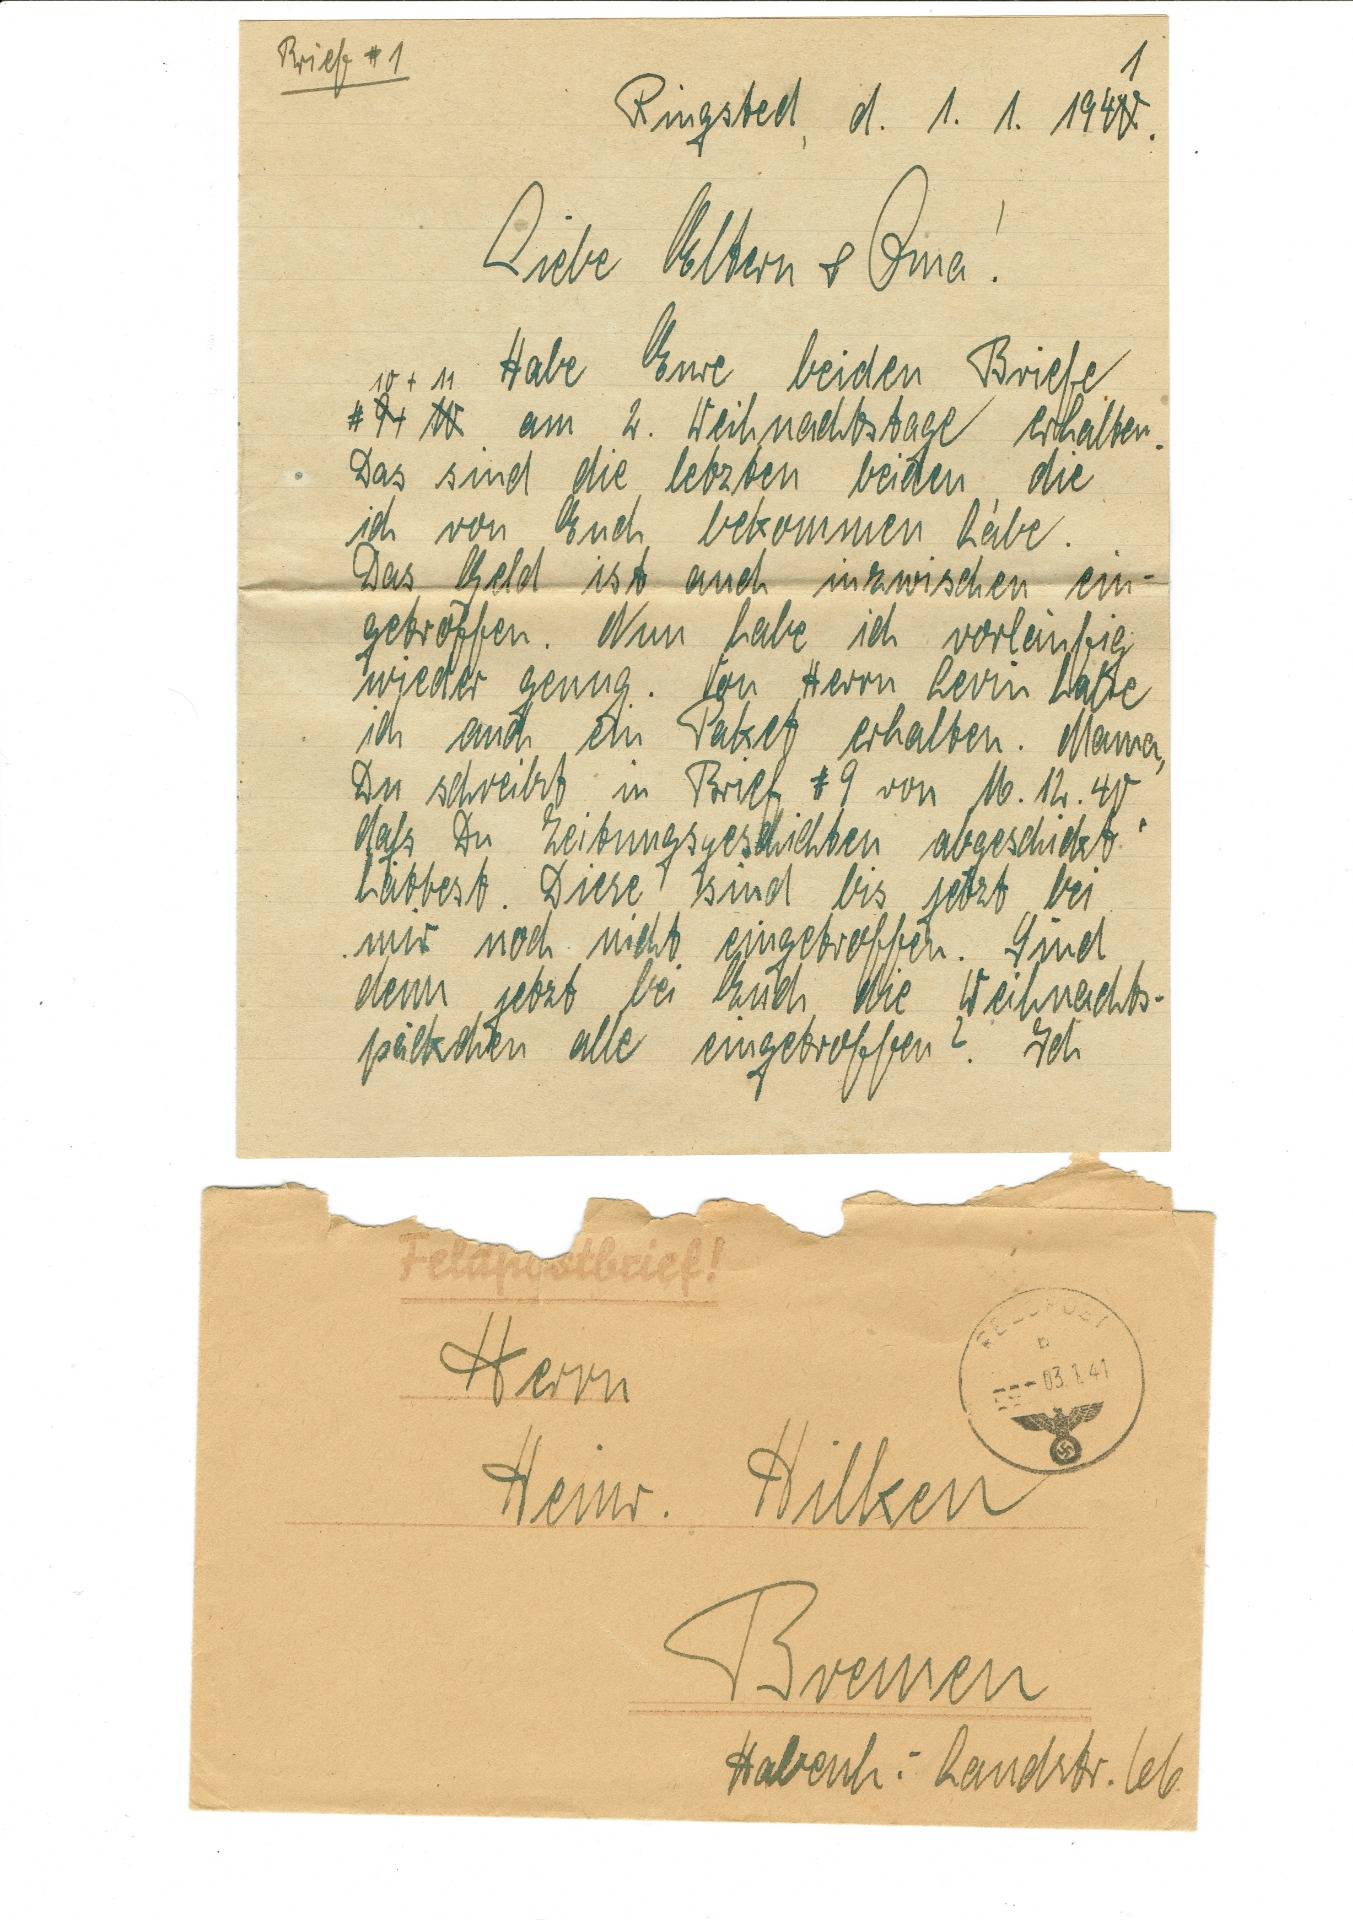 Brief #1
Ringsted, d. 1. 1. 1941.
Liebe Eltern & Oma!
Habe Eure beiden Briefe
10 + 11
# 9 + 10 am 2. Weihnachtstage erhalten.
Das sind die letzten beiden, die
ich von Euch bekommen habe.
Das Geld ist auch inzwischen ein-
getroffen. Nun habe ich vorläufig
wieder genug. Von Herrn Levin habe
ich auch ein Paket erhalten. Mama,
Du schreibst in Brief #9 von 16. 12. 40
daß Du Zeitungsgeschichten abgeschickt
hättest. Diese sind bis jetzt bei
mir noch nicht eingetroffen. Sind
denn jetzt bei Euch die Weihnachts-
päckchen alle eingetroffen? Ich
Feldpostbrief!
FELDPOST
b
03.1.41
Herrn
Heinr. Hilken
Bremen
Habenh. - Landstr. 66